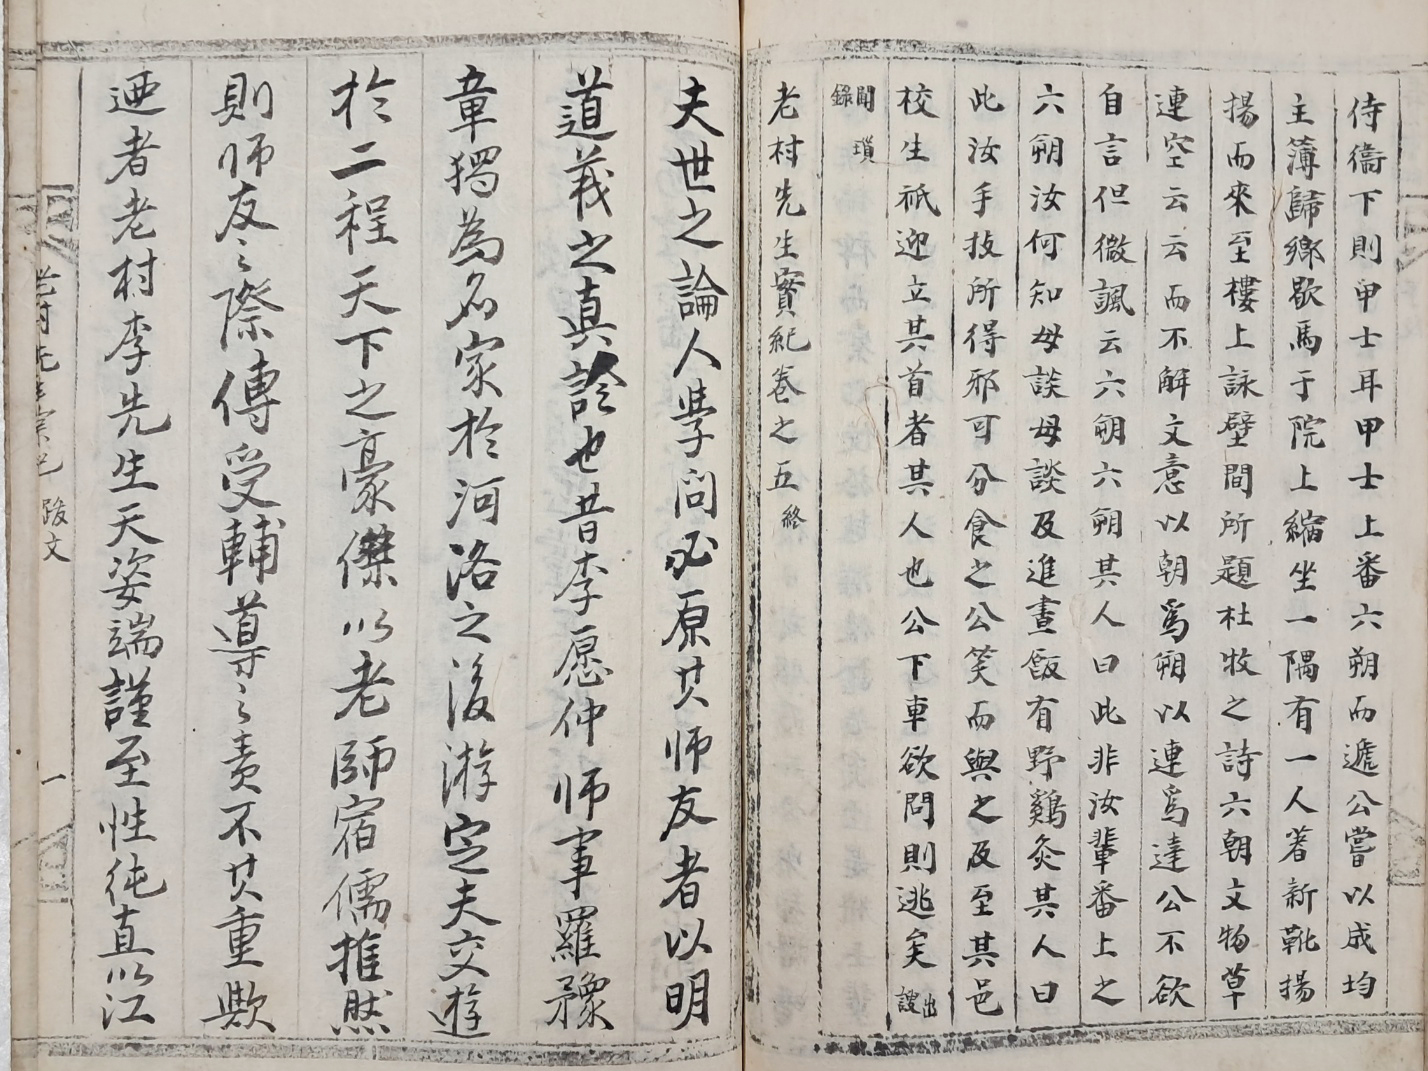 侍衛下則甲士耳甲士上番六朔而遞公嘗以成均
主簿歸鄉歇馬于院上縮坐一隅有一人著新靴揚
揚而來至樓上詠壁間所題杜牧之詩六朝文物草
連空云云而不解文意以朝爲朔以連爲達公不欲
自言但微諷云六朔六朔其人曰此非汝輩番上之
六朔汝何知毋談毋談及進晝飯有野鷄炙其人曰
此汝手技所得邪可分食之公笑而與之及至其邑
校生祇迎立其首者其人也公下車欲問則逃矣出謏
聞瑣錄
老村先生實紀卷之五終
夫世之論人學問必原其師友者以明
道義之真諗也昔李愿仲師事羅豫
章獨爲名家於河洛之後游定夫交遊
於二程天下之豪傑以老師宿儒推然
則師友之際傳受輔導之責不其重歟
迺者老村李先生天姿端謹至性純直以江
老村先生實紀 跋文 一